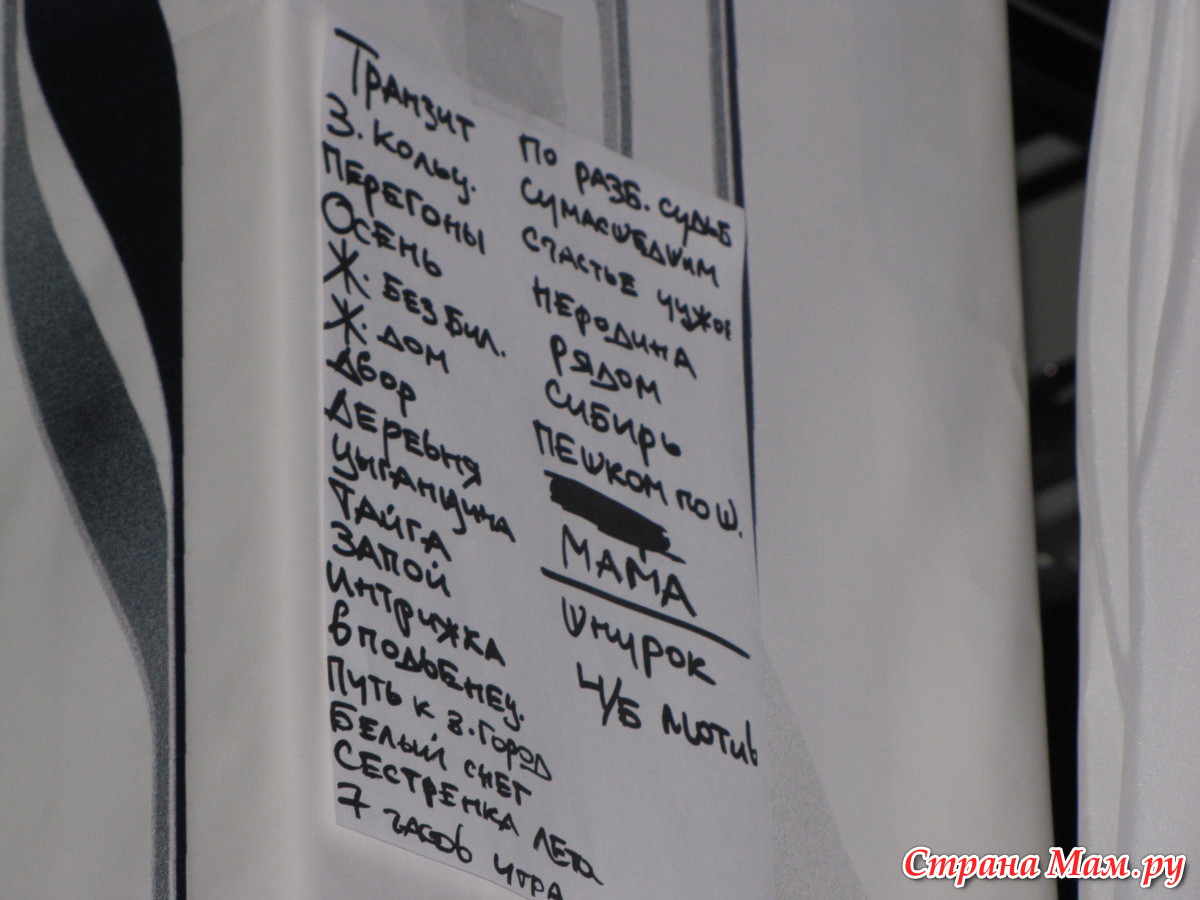 Транзит
З. кольц.
Перегоны
Осень
Ж. без бил.
Ж. дом
Двор
Деревня
Цыганщина
Тайга
Запой
Интрижка
В подвенец.
Путь к з. город
Белый снег
Сестренка лета
7 часов утра
По разб. судьб
Сумасшедшим
Счастье чужое
Неродина
Рядом
Сибирь
Пешком по ш.
МАМА
Шнурок
Ч/Б мотив
Страна Мам.ру